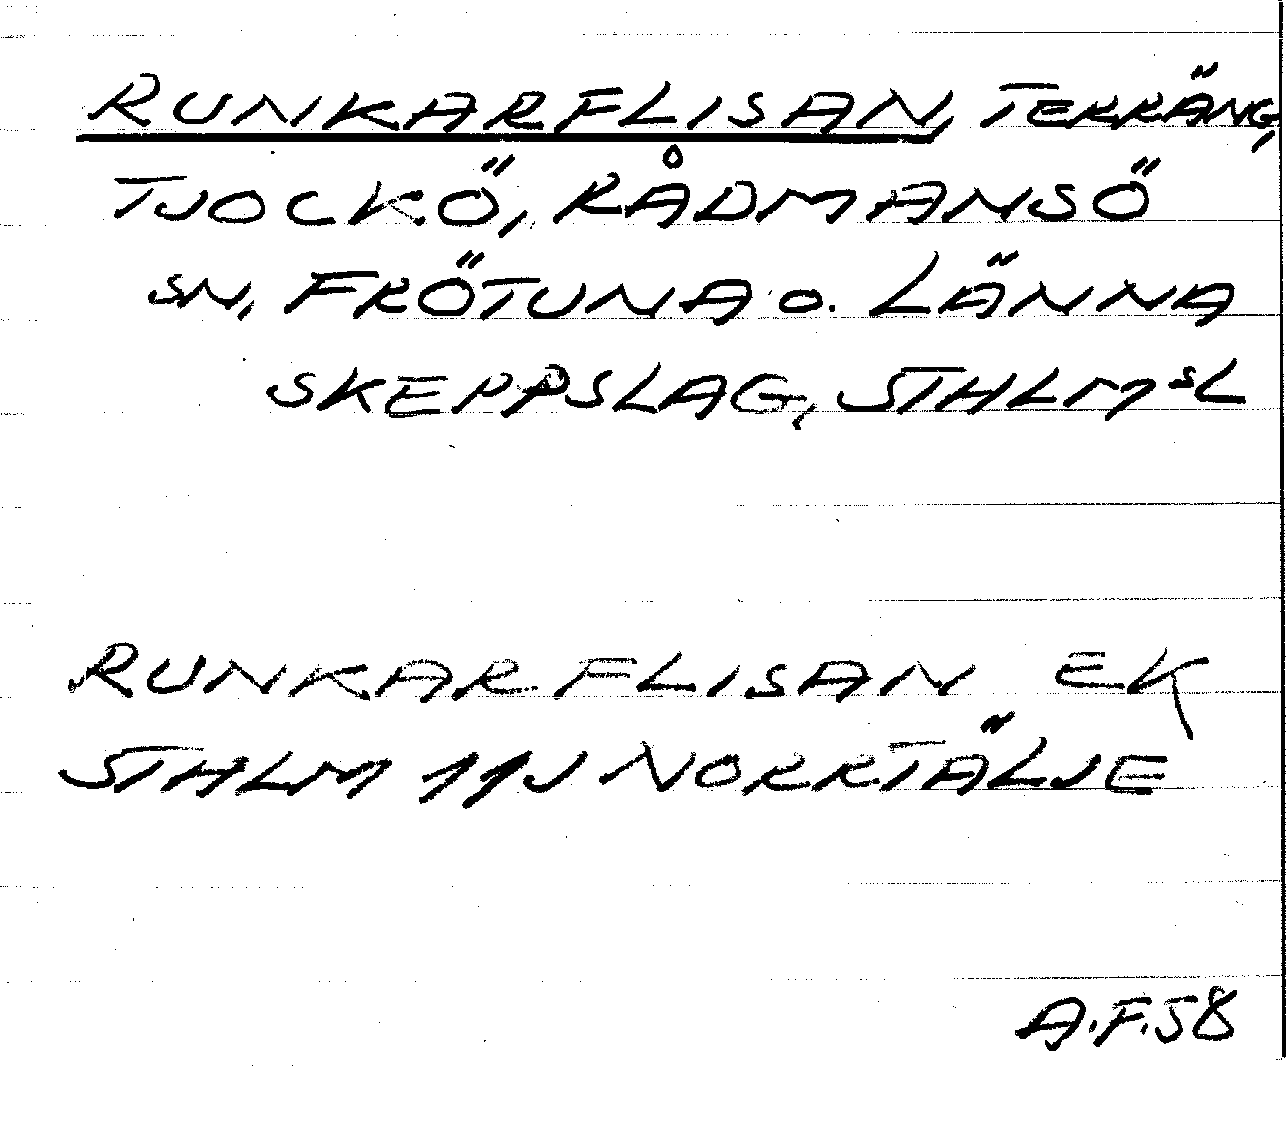 RUNKARFLISAN, TERRÄNG,
TJOCKÖ, RÅDMANSÖ
SN, FRÖTUNA O. LÄNNA
SKEPPSLAG, STHLMSL
RUNKARFLISAN EK
STHLM 11J NORRTÄLJE
A.F.58